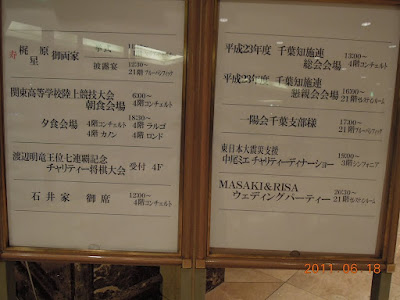 寿 梶原
星 御両家
披露宴 12:30～
21階
関東高等学校陸上競技大会
朝食会場 6:00～
4階コンチェルト
夕食会場 18:30～
4階ラルゴ
4階カノン 4階ロンド
渡辺明竜王位七連覇記念
チャリティー将棋大会 受付 4F
石井家 御席 12:00～
4階コンチェルト
平成23年度 千葉知施連
総会会場 13:00～
4階コンチェルト
平成23年度 千葉知施連
懇親会会場 16:00～
21階
一陽会千葉支部様 17:00～
21階
東日本大震災支援
中尾ミエ チャリティーディナーショー 18:00～
3階シンフォニア
MASAKI&RISA
ウェディングパーティー 20:30～
21階
2011.06.18